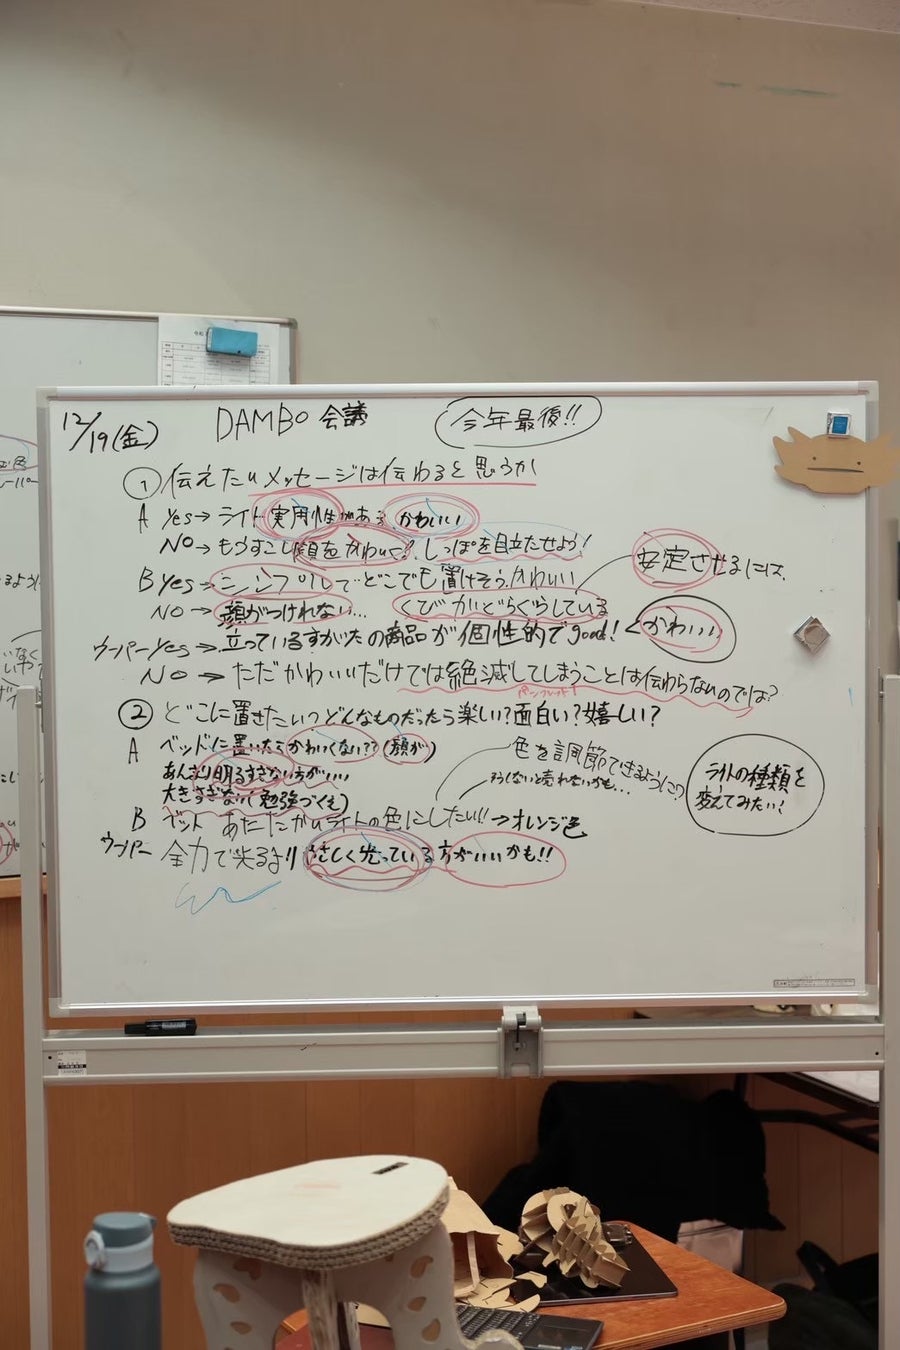 12/19(金) DAMBO 会議 今年最後!!
① 伝えたいメッセージは伝わると思うか
A Yes→ ライト 実用性がある かわいい
NO→ もうすこし顔をかわいく?. しっぽを目立たせよう!
B Yes→ シンプルでどこでも置けそう. かわいい 安定させるには、
NO→ 顔がつけれない... くびがぐらぐらしている
ウーパー Yes→ 立っているすがたの商品が個性的でgood! かわいい
NO → ただかわいいだけでは絶滅してしまうことは伝わらないのでは?
パンフレット!
② どこに置きたい?どんなものだったら楽しい?面白い?嬉しい?
A ベッドに置いたらかわいくない??(顔が) 色を調節できるように?
あんまり明るすぎない方がいい そうしないと売れないかも...
大きさぎない(勉強づくえ) ライトの種類を変えてみたい!
B ベット あたたかいライトの色にしたい!!→オレンジ色
ウーパー 全力で光るより やさしく光っている方がいいかも!!